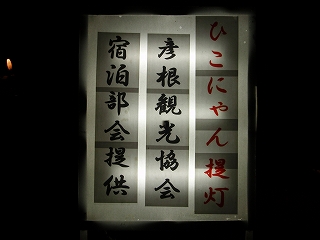 ひこにゃん提灯
彦根観光協会
宿泊部会提供